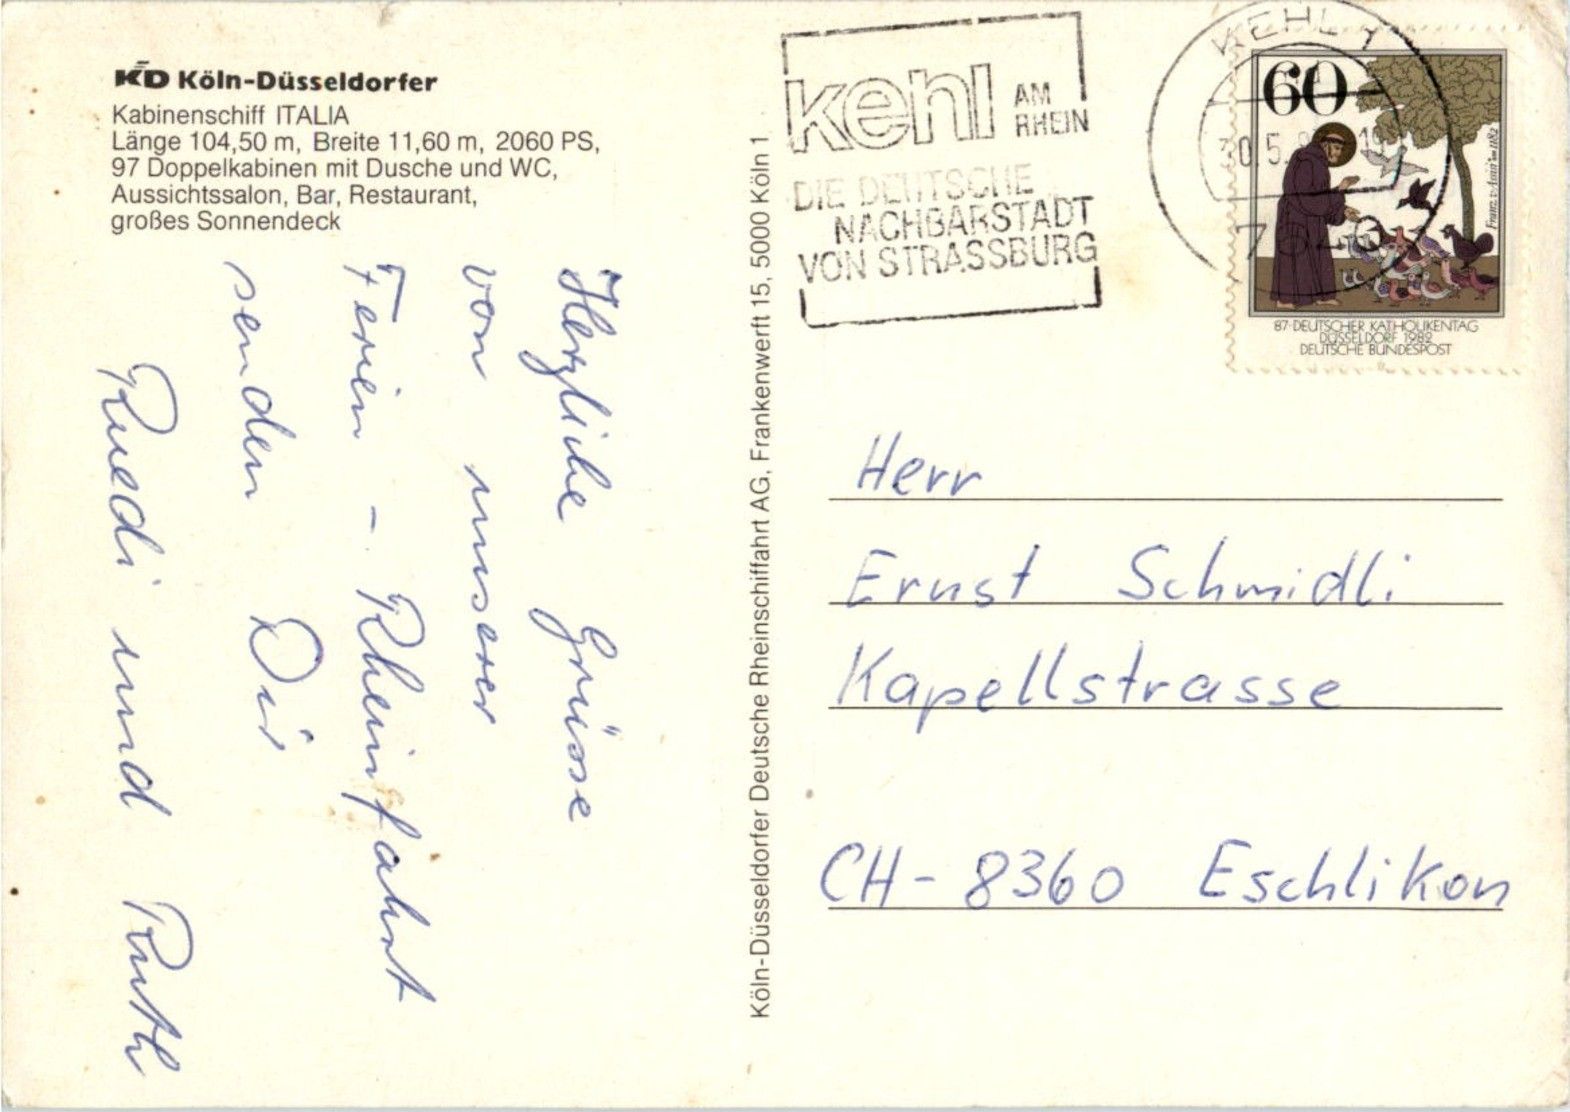 KD Köln-Düsseldorfer
Kabinenschiff ITALIA
Länge 104,50 m, Breite 11,60 m, 2060 PS,
97 Doppelkabinen mit Dusche und WC,
Aussichtssalon, Bar, Restaurant,
großes Sonnendeck
Herzliche Grüsse
von unserer
Ferien - Rheinfahrt
senden Dir
Ruedi und Ruth
Köln-Düsseldorfer Deutsche Rheinschiffahrt AG, Frankenwerft 15, 5000 Köln 1
kehl AM
RHEIN
DIE DEUTSCHE
NACHBARSTADT
VON STRASSBURG
KEHL 1
30.5.
60
Franz v. Assisi um 1182
87. DEUTSCHER KATHOLIKENTAG
DÜSSELDORF 1982
DEUTSCHE BUNDESPOST
Herr
Ernst Schmidli
Kapellstrasse
CH- 8360 Eschlikon